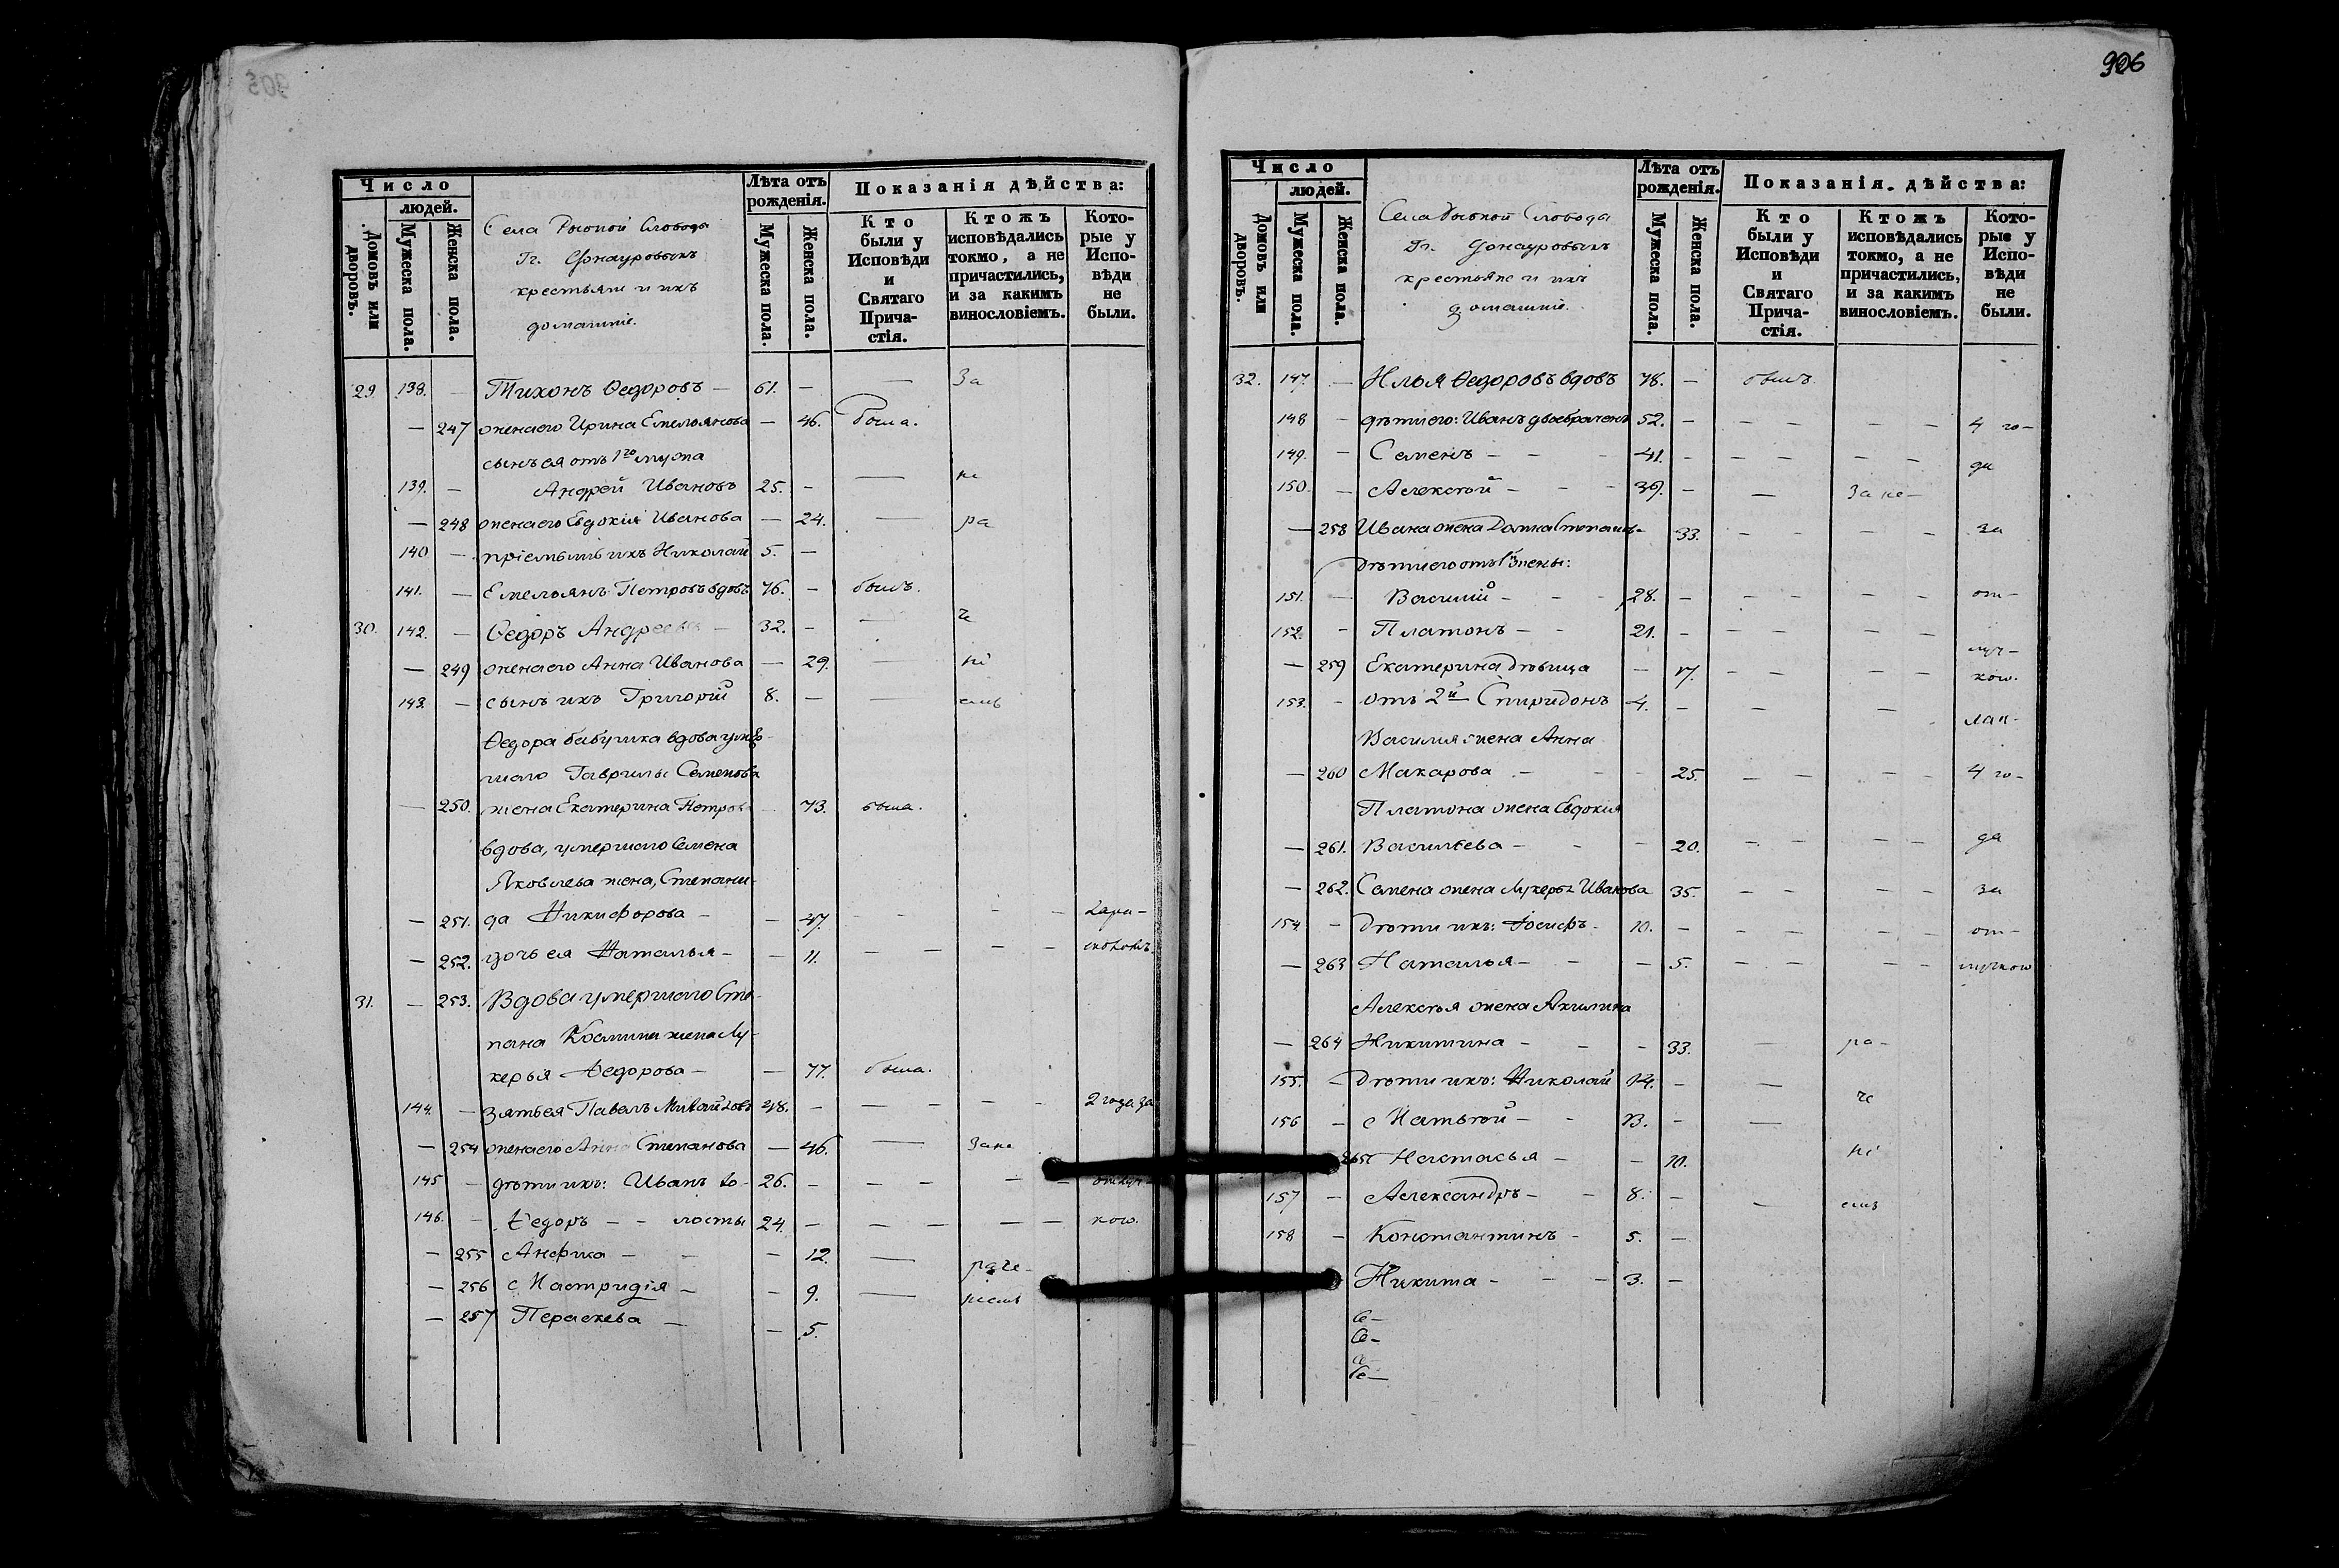 905
Число
людей.
Домовъ или дворовъ.
Мужеска пола.
Женска пола.
Села Рыбной Слободы
Гг. Фонауровыхъ
крестьяне и ихъ
домашніе.
Лѣта отъ рожденія.
Мужеска пола.
Женска пола.
Показанія дѣйства:
Кто были у Исповѣди и Святаго Причастія.
Ктожъ исповѣдались токмо, а не причастились, и за какимъ винословіемъ.
Которые у Исповѣди не были.
29 138. — Тихонъ Ѳедоровъ — 61. — — За
— 247 жена его Ирина Емельянова — 46. была.
сынъ ея отъ 1го мужа
139. — Андрей Ивановъ 25. — — не
— 248 жена его Евдокія Иванова — 24. — ра
140 — пріемышъ ихъ Николай 5. —
141. — Емельянъ Петровъ вдовъ 76. — былъ.
30. 142. — Ѳедоръ Андреевъ — 32. — — че
— 249 жена его Анна Иванова — 29. — ні
143. — сынъ ихъ Григорій 8. — — емъ
Ѳедора бабушка вдова умер-
шаго Гаврилы Семенова
— 250. жена Екатерина Петрова — 73. была.
вдова, умершаго Семена
Яковлева жена, Степани-
— 251. да Никифорова — — 47. — — — —
— 252. дочь ея Наталья — — 11. — — — —
31. — 253. Вдова умершаго Сте-
пана жена Лу-
керья Ѳедорова — — 77. была.
144. — зять ея Павелъ Михайловъ 48. — — — — — 2 года за
— 254 жена его Анна Степанова — 46. — Зане
145 — дѣти ихъ: Иванъ хо- 26. — — — — — отлуч-
146. — Ѳедоръ — — лосты 24. — — — — — кою.
— 255 Анфиса — — — 12. —
раче-
— 256 Настридія — — 9. — ніемъ
— 257 Пераскева — — 5.
906
Число
людей.
Домовъ или дворовъ.
Мужеска пола.
Женска пола.
Села Рыбной Слободы
Гг. Фонауровыхъ
крестьяне и ихъ
домашніе.
Лѣта отъ рожденія.
Мужеска пола.
Женска пола.
Показанія дѣйства:
Кто были у Исповѣди и Святаго Причастія.
Ктожъ исповѣдались токмо, а не причастились, и за какимъ винословіемъ.
Которые у Исповѣди не были.
32. 147. — Илья Ѳедоровъ вдовъ 78. — былъ.
148 — дѣти его: Иванъ двоебраченъ 52. — — — — — 4 го-
149. — Семенъ — — — 41. — — — — — да
150. — Алексѣй — — — 39. — — Зане-
— 258 Ивана жена Домна Степанов- 33. — — — — за
Дѣти его отъ 1й жены:
151. — Василій — — — 28. — — — — — от-
152. — Платонъ — — 21. — — — — —
луч-
— 259 Екатерина дѣвица — 17. — — — — кою.
153. — отъ 2й Спиридонъ 4. — — —
Василія жена Анна
— 260 Макарова — — — 25. — — — — 4 го-
Платона жена Евдокія
— 261. Васильева — — — 20. — — — — да
— 262. Семена жена Лукерья Иванова 35. — — — — за
154 — Дѣти ихъ: Іосифъ — 10. — — — — — от-
— 263 Наталья — — — 5. — — — — лучкою
Алексѣя жена Акилина
— 264 Никитина — — — 33. — ра-
155. — Дѣти ихъ: Николай 14. — —
че
156 — Матвѣй — — 13. — —
265 Настасья — — 10. ні
157 — Александръ — — 8. — — емъ
158 — Константинъ — 5. —
Никита — — — 3. —